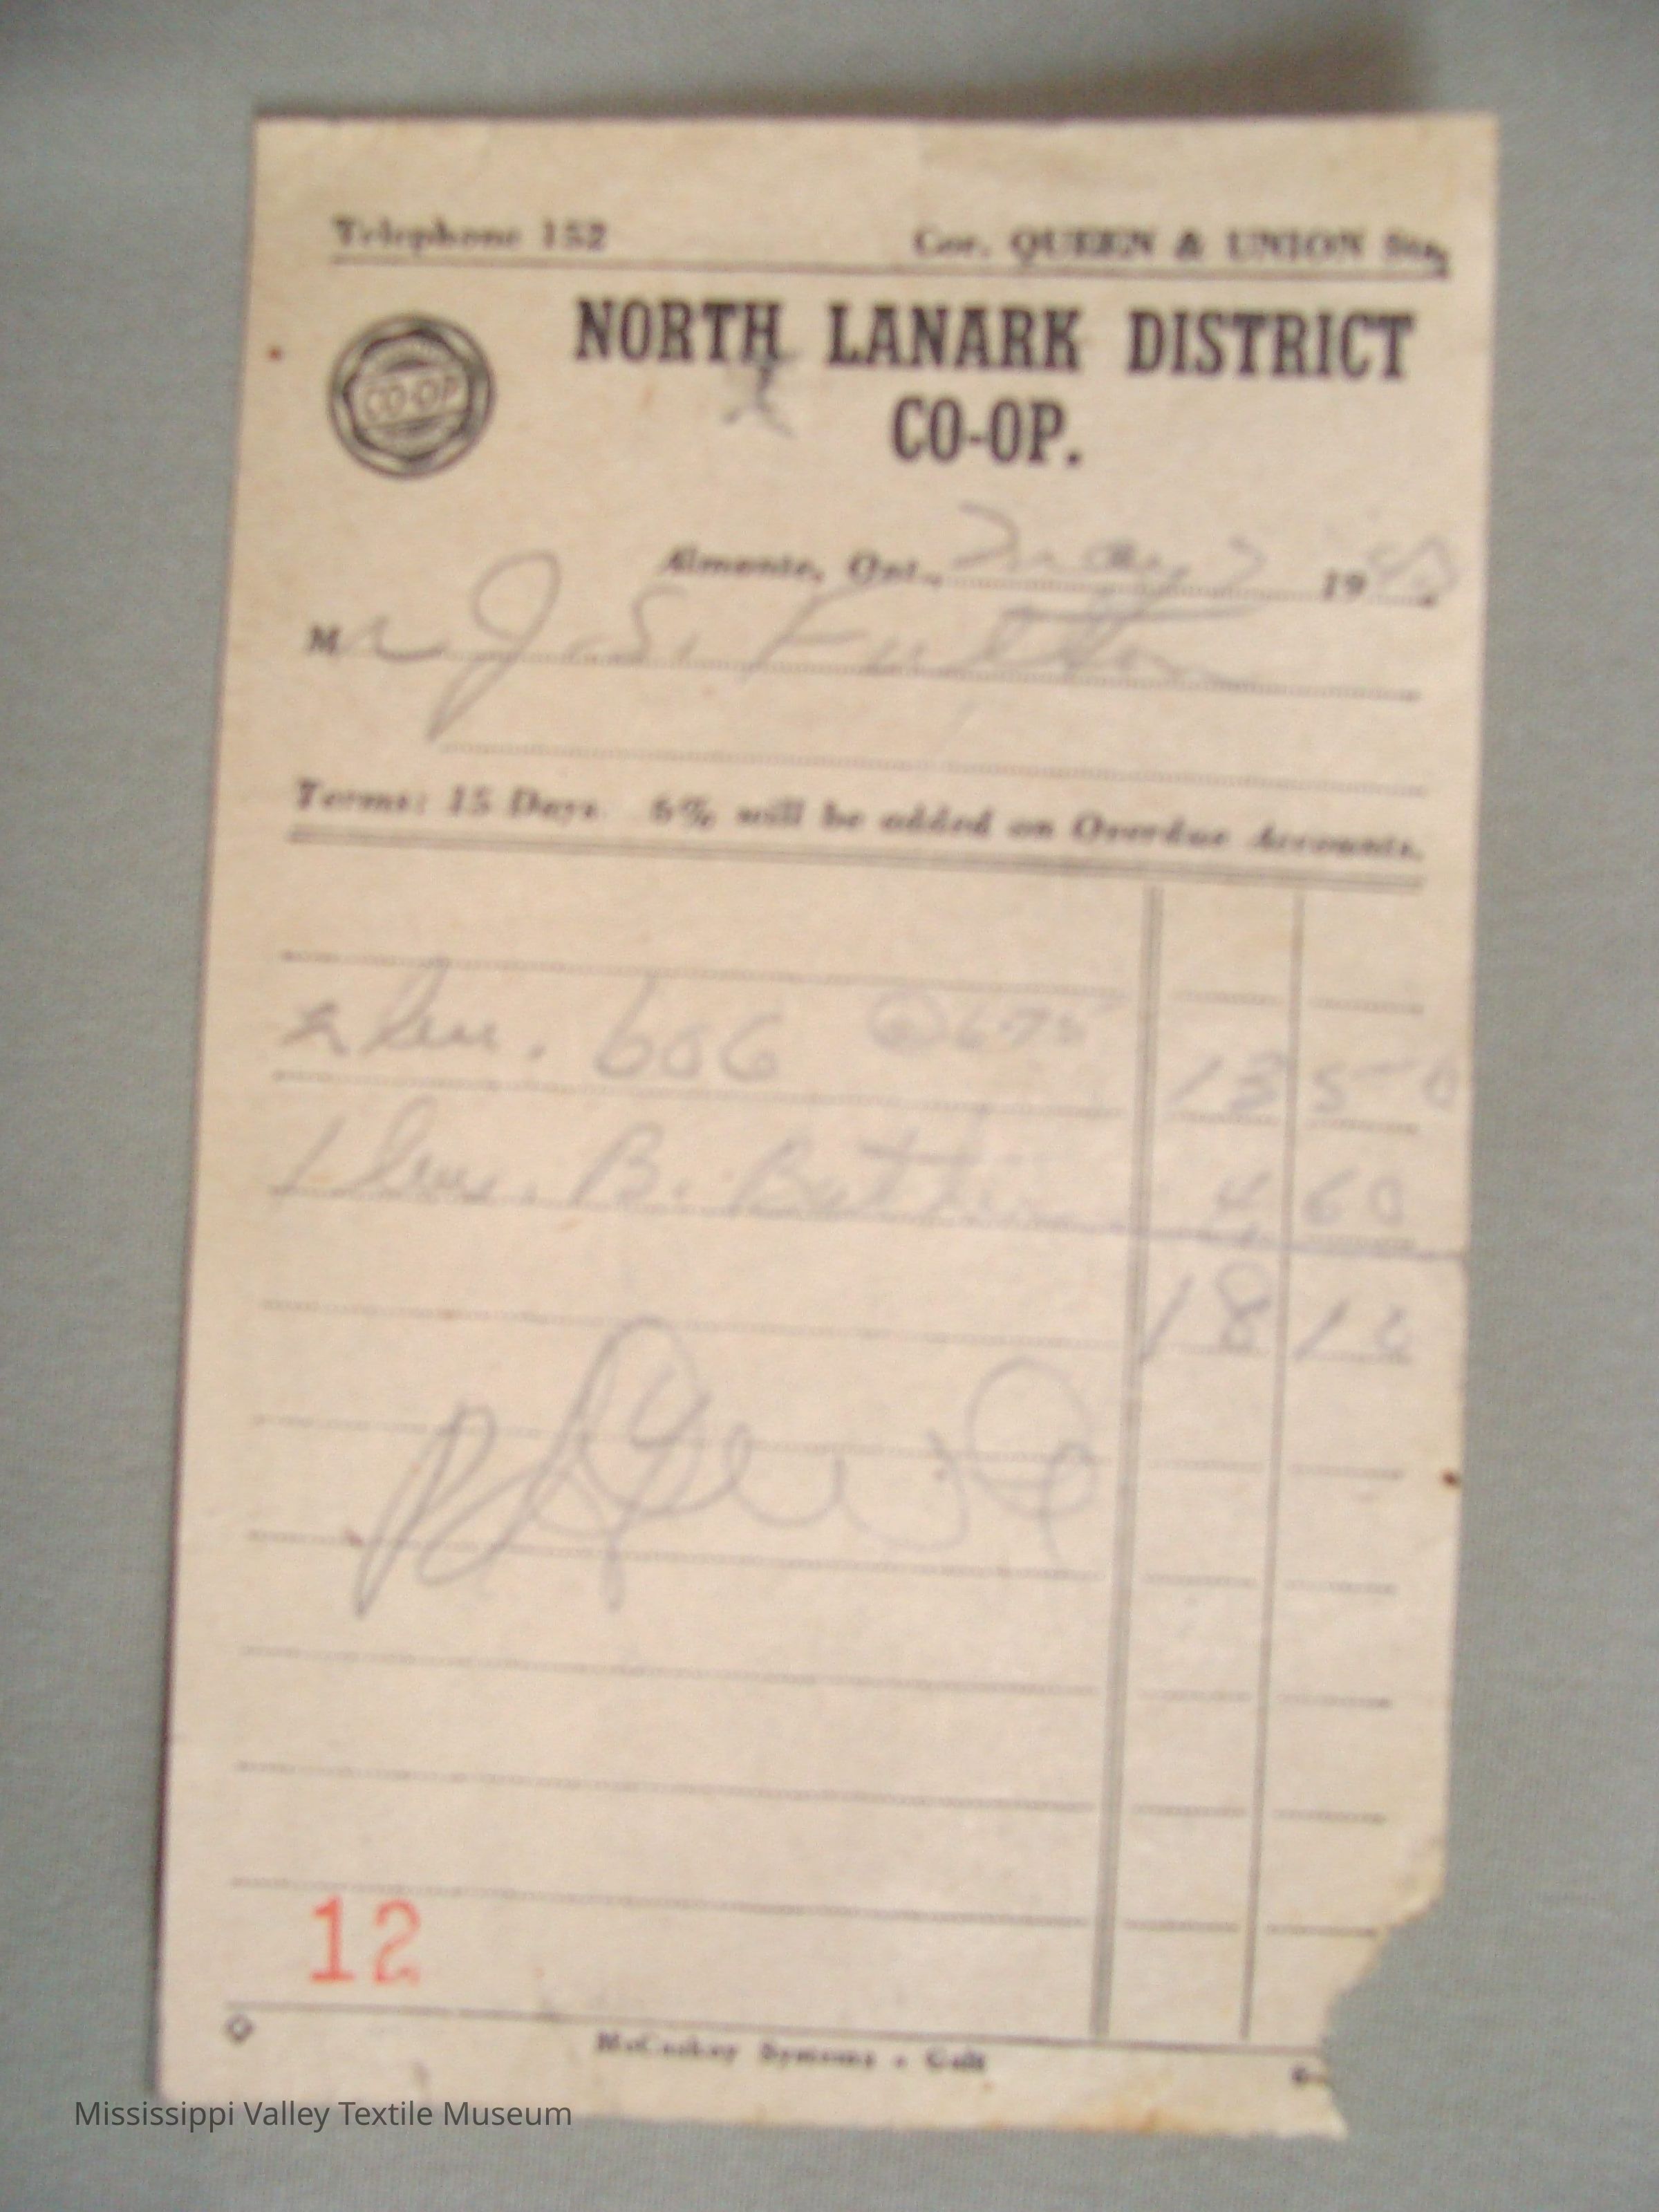 Telephone 152 Cor. QUEEN & UNION Sts.
NORTH LANARK DISTRICT
CO-OP.
CO-OP
Almonte, Ont., May 7 19
Mr J. S. Fulton
Terms: 15 Days. 6% will be added on Overdue Accounts.
2 606 @ 675 13 50
1 B. 4 60
18 10
12
McCaskey Systems - Galt
Mississippi Valley Textile Museum